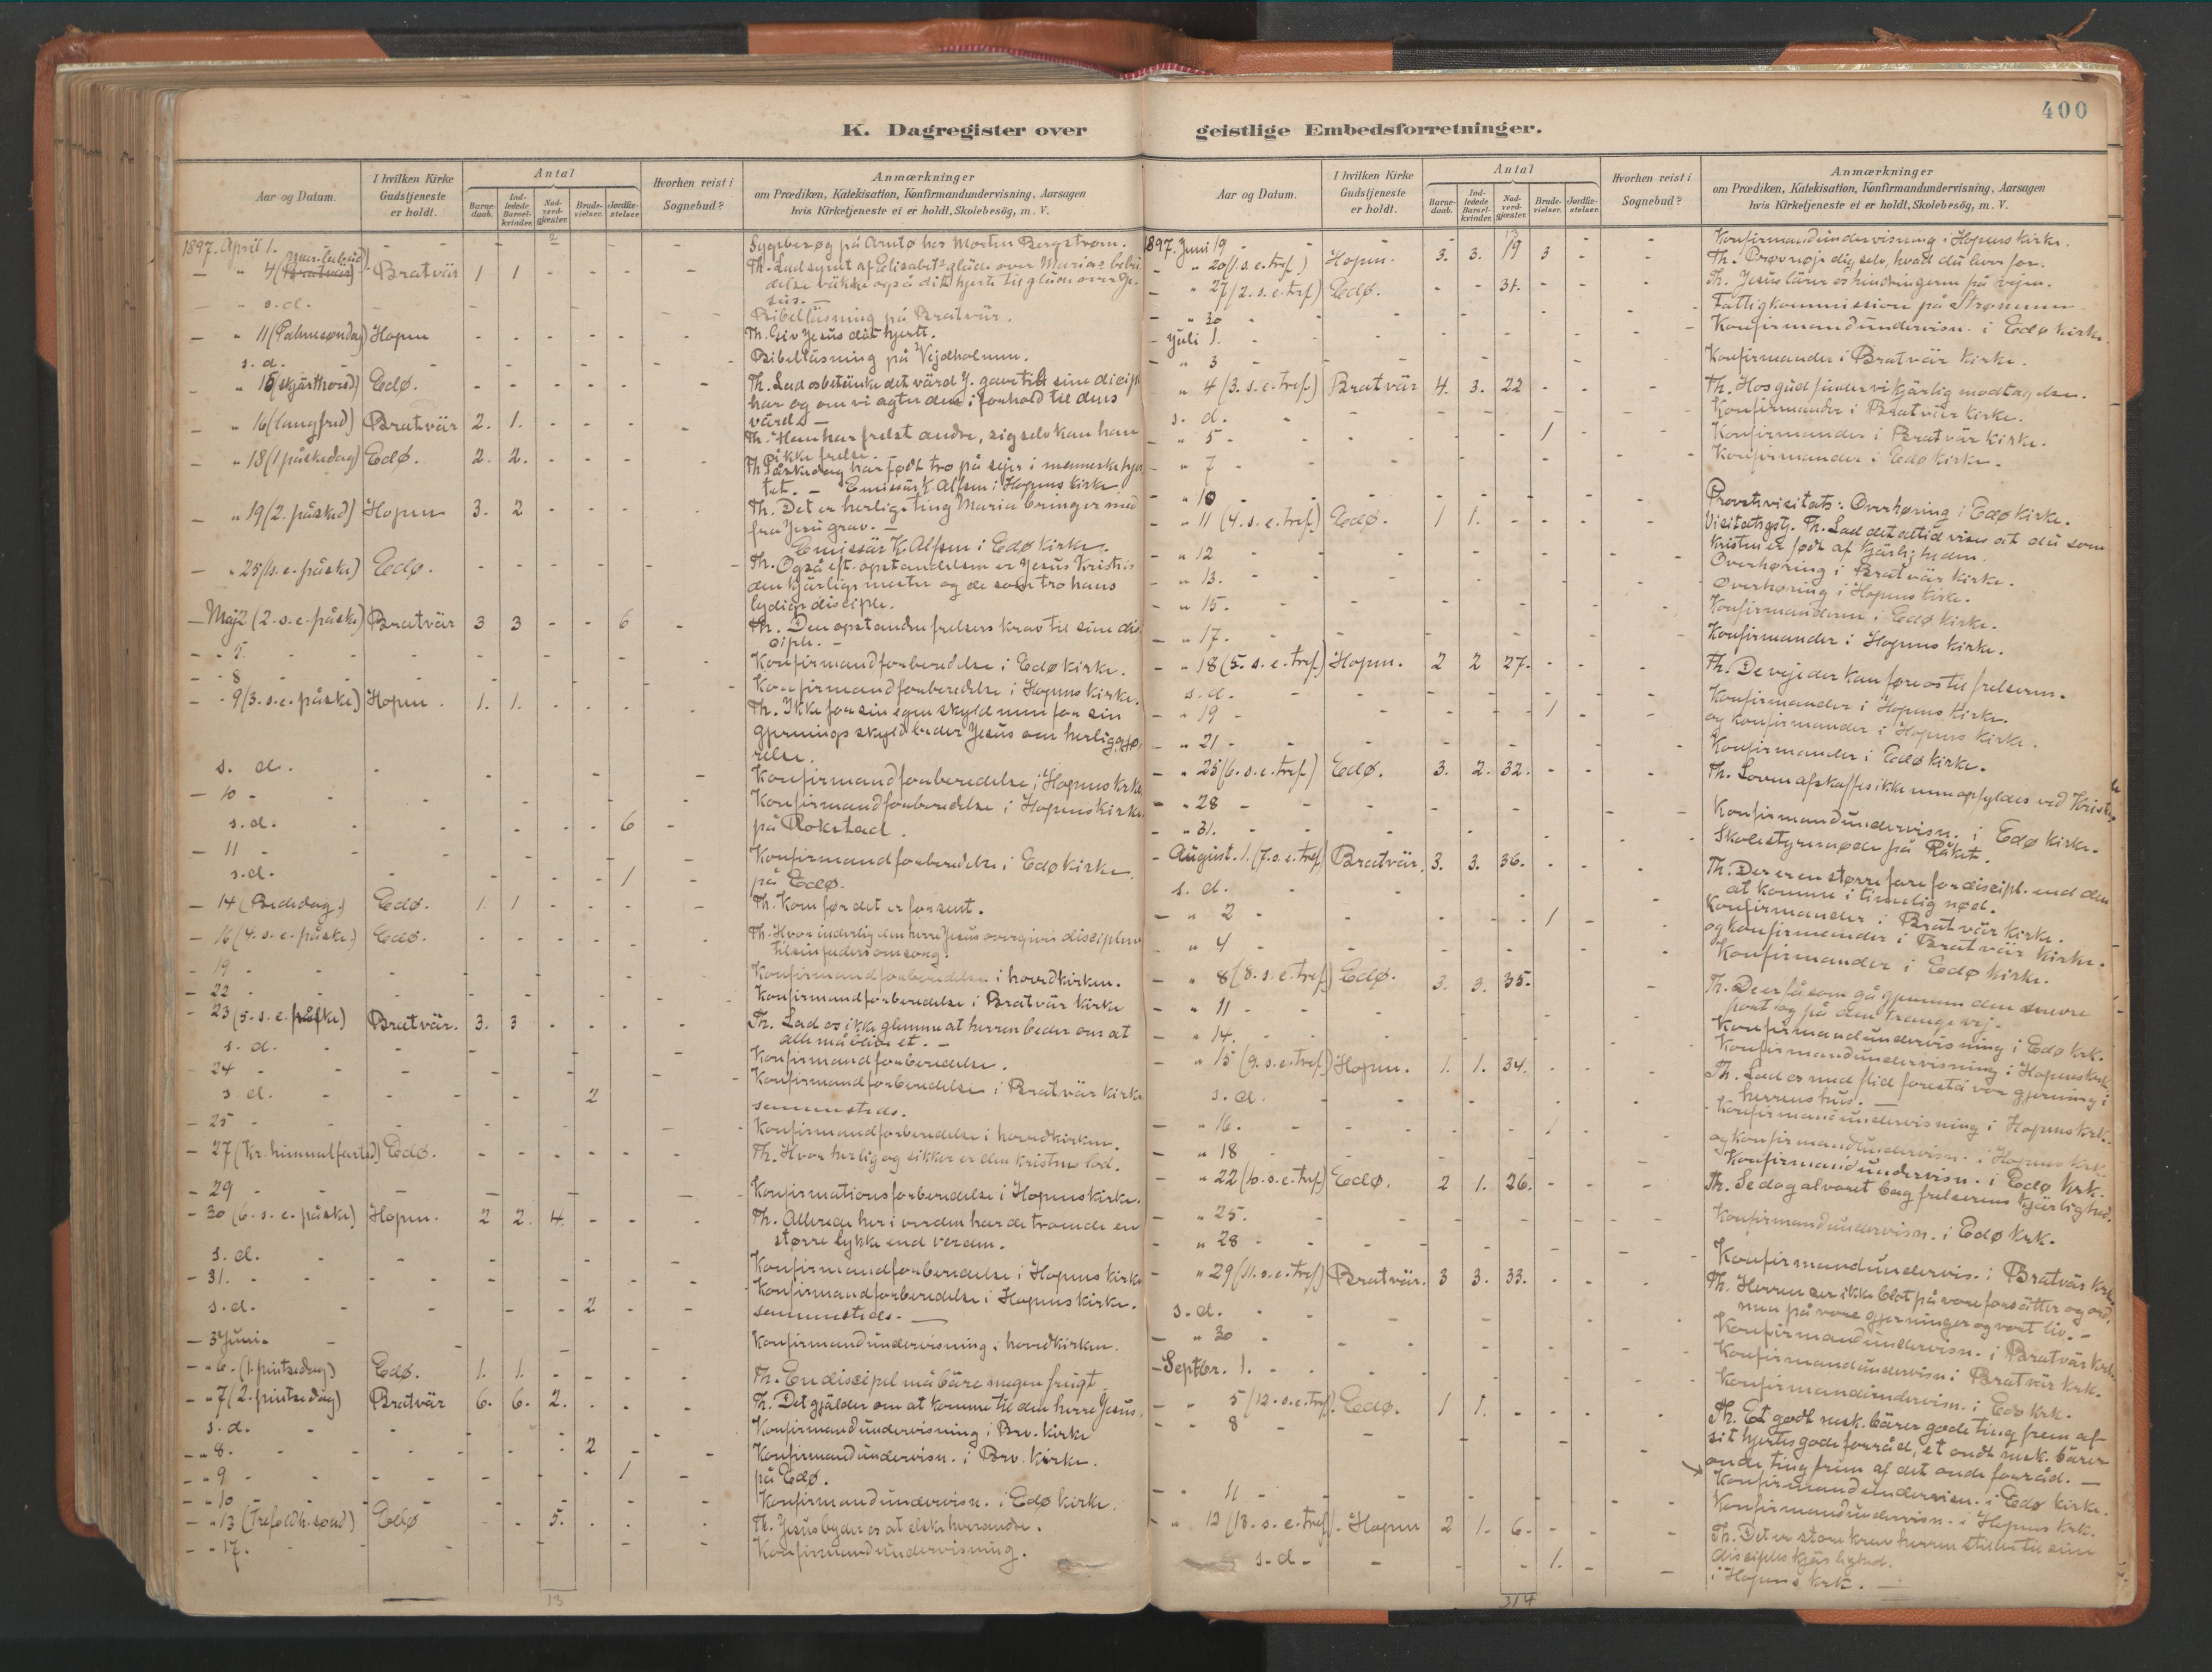 400
K. Dagregister over
Aar og Datum. I hvilken Kirke Gudstjeneste er holdt. Antal Barne-daab. Ind-ledede Barsel-kvinder. Nad-verd-gjester. Brude-vielser. Jordfæ-stelser Hvorhen reist i Sognebud? Anmærkninger
om Prædiken, Katekisation, Konfirmandundervisning, Aarsagen
hvis Kirketjeneste ei er holdt, Skolebesög, m. V.
1897. April 1. - - - 2 - - - Sygebesøg på Arntø hos Morten Bergstrøm.
- " 4 Bratvär 1 1 - - - - Th. Lad synet af Elisabets gläde over Marias
delse väkke også dit hjerte til gläde over Je-
sus. -
- " s.d. Bibelläsning på Bratvär.
- " 11 (Palmesøndag) Hopen - - - - - - Th. Giv Jesus dit hjerte.
s. d. Bibelläsning på Vejdholmen.
- " 15 (skjärthorsd) Edø. - - - - - - Th. Lad os betänke det värd J. gav til sine discipl
har og om vi agter dem i forhold til dens
värd. -
- " 16 (langfred) Bratvär 2. 1. - - - - Th. Han har frelst andre, sig selv kan han
ikke frelse. -
- " 18 (1 påskedag) Edø. 2. 2. - - - - Th. Påskedag har født tro på sejer i menneskehjer
tet. - Emissär K. Alfsen i Hopens kirke
- " 19 (2. påsked) Hopen 3. 2 - - - - Th. Det er herlige ting Maria bringer med
fra Jesu grav. -
Emissär K. Alfsen i Edø kirke.
- " 25 (1. s. e. påske) Edø. - - - - - - Th. Også eft. opstandelsen er Jesus Kristus
den kjärlige mester og de som tro hans
lydige disciple.
- Maj 2 (2. s. e. påske) Bratvär 3 3 - - 6 - Th. Den opstandne frelsers krav til sine dis
ciple. -
- " 5. - - - - - - - Konfirmandforberedelse i Edø kirke.
- " 8 - - - - - - - Konfirmandforberedelse i Hopens kirke.
- " 9 (3. s. e. påske) Hopen. 1. 1. - - - - Th. Ikke for sin egen skyld men for sin
gjernings skyld beder Jesus om herliggjø-
relse.
s. d. - - - - - - Konfirmandforberedelse i Hopens kirke
- 10 - - - - - - - Konfirmandforberedelse i Hopens kirke
s. d. - - - - - 6 - på Rokstad.
- 11 - - - - - - - Konfirmandforberedelse i Edø kirke.
s.d. - - - - 1 - på Edø.
- 14 (Bededag.) Edø. 1. 1 - - - - Th. Kom før det er for sent.
- 16 (4. s. e. påske.) Edø. - - - - - - Th. Hvor inderlig den herre Jesus overgiver disciplene
til sin faders omsorg.
- 19 - - - - - - - Konfirmandforberedelse i hovedkirken.
- 22 - - - - - - - Konfirmandforberedelse i Bratvär kirke
- 23 (5. s. e. påske) Bratvär. 3. 3 - - - - Th. Lad os ikke glemme at herren beder om at
alle må blive et. -
s. d. - - - - - - Konfirmandforberedelse.
- 24 - - - - - - - Konfirmandforberedelse i Bratvär kirke
s. d. - - - 2 - - sammesteds.
- 25 - - - - - - - Konfirmandforberedelse i hovedkirken.
- 27 (Kr. himmelfartsd) Edø. - - - - - - Th. Hvor herlig og sikker er den kristnes lod.
- 29 - - - - - - - Konfirmationsforberedelse i Hopens kirke.
- 30 (6. s. e. påske) Hopen. 2 2. 4. - - - Th. Allerede her i verden har de troende en
større lykke end verden.
s. d. - - - - - - Konfirmandforberedelse i Hopens kirke
- 31. - - - - - - - Konfirmandforberedelse i Hopens kirke.
s. d. - - - 2 - - sammesteds. -
- 3 Juni. - - - - - Konfirmandundervisning i hovedkirken.
- " 6. (1. pintsedag) Edø. 1. 1. - - - - Th. En discipel må bäre megen frugt.
- " 7 (2. pintsedag) Bratvär 6. 6. 2. - - - Th. Det gjälder om at komme til den herre Jesus.
s. d. - - - - - - Konfirmandundervisning i Brv. kirke
- " 8. - - - 2 - - Konfirmandundervisn. i Brv. kirke.
- " 9 - - - - 1 - på Edø.
- " 10 - - - - - - Konfirmandundervisn. i Edø kirke.
- " 13 (Trefoldh. sønd) Edø - - 5. - - - Th. Jesus byder os at elske hverandre.
- " 17. - - - - - - Konfirmandundervisning.
13
geistlige Embedsforretninger.
Aar og Datum. I hvilken Kirke Gudstjeneste er holdt. Antal Barne-daab. Ind-ledede Barsel-kvinder. Nad-verd-gjester. Brude-vielser. Jordfæ-stelser. Hvorhen reist i Sognebud? Anmærkninger
om Prædiken, Katekisation, Konfirmandundervisning, Aarsagen
hvis Kirketjeneste ei er holdt, Skolebesög, m. V.
13
1897. Juni 19 - - - - - - Konfirmandundervisning i Hopens kirke.
- " 20 (1. s. e. tref.) Hopen. 3. 3. 19 3 - - Th. Prøv nøje dig selv, hvad du lever for.
- " 27 (2. s. e. tref.) Edø. - - 31. - - - Th. Jesus lärer os hindringerne på vejen.
- " 30 - - - - - - Fattigkommission på Strømmen.
- Juli 1. - - - - - - Konfirmandundervisn. i Edø kirke.
- " 3 - - - - - - Konfirmander i Bratvär kirke.
" 4 (3. s. e. tref.) Bratvär 4. 3. 22 - - - Th. Hos gud finder vi kjärlig modtagelse.
s. d. - - - - - - Konfirmander i Bratvär kirke.
" 5 - - - - 1 - - Konfirmander i Bratvär kirke.
- " 7 - - - - - - Konfirmander i Edø kirke.
- " 10 - - - - - - Provstevisitats: Overhøring i Edø kirke.
- " 11 (4. s. e. tref.) Edø. 1 1. - - - - Visitatsgstj. Th. Lad det altid vises at du som
kristen er født af kjärligheden.
- " 12 - - - - - - Overhøring i Bratvär kirke.
- " 13. - - - - - - Overhøring i Hopens kirke.
- " 15. - - - - - - Konfirmanderne i Edø kirke.
- " 17. - - - - - - Konfirmander i Hopens kirke.
- " 18 (5. s. e. tref.) Hopen. 2 2 27. - - - Th. De veje der kan føre os til frelseren.
s. d. - - - - - - Konfirmander i Hopens kirke.
- " 19 - - - - 1 - - og konfirmander i Hopens kirke.
- " 21 - - - - - - Konfirmander i Edø kirke.
- " 25 (6. s. e. tref.) Edø. 3. 2. 32. - - - Th. Loven afskaffes ikke men opfyldes ved Kristus
- " 28 - - - - - - Konfirmandundervisn. i Edø kirke.
- " 31. - - - - - - Skolestyremøde på Råket.
- August. 1. (7. s. e. tref) Bratvär. 3. 3. 36. - - - Th. Der er en større fare for discipl. end den
at komme i timelig nød.
s. d. - - - - - - Konfirmander i Bratvär kirke.
- " 2 - - - - 1 - - og konfirmander i Bratvär kirke.
- " 4 - - - - - - Konfirmander i Edø kirke.
- " 8 (8. s. e. tref) Edø. 3. 3. 35. - Th. De er få som gå gjennem den snevre
port og på den trange vej.
- " 11 - - - - - - Konfirmandundervisning i Edø krk.
- " 14. - - - - - - Konfirmandundervisning i Hopens krk
- " 15 (9. s. e. tref.) Hopen. 1. 1. 34. - - - Th. Lad os med flid forestå vor gjerning i
herrens hus. -
s. d. - - - - - - Konfirmandundervisning i Hopens krk.
- " 16. - - - - 1 - - og konfirmandundervisn. i Hopens krk.
- " 18 - - - - - Konfirmandundervisn. i Edø krk.
- " 22 (10. s. e. tref.) Edø. 2 1. 26. - - - Th. Se dog alvoret bag frelserens kjärlighed.
- " 25. - - - - - - Konfirmandundervisn. i Edø krk.
- " 28 - - - - - - Konfirmandundervis. i Bratvär krk.
- " 29 (11. s. e. tref) Bratvär. 3 3. 33. - - - Th. Herren ser ikke blot på vore forsätter og ord,
men på vore gjerninger og vort liv. -
s. d. - - - - - Konfirmandundervisn. i Bratvär krk.
- " 30 - - - - - Konfirmandundervisn i Bratvär krk.
- Septbr. 1. - - - - - Konfirmandundervisn. i Edø krk.
- " 5 (12. s. e. tref). Edø. 1 1. - - - - Th. Et godt msk. bärer gode ting frem af
sit hjertes gode forråd, et ondt msk. bärer
onde ting frem af det onde forråd. -
- " 8 - - - - - Konfirmandundervisn. i Edø kirke.
- " 11 - - - - - Konfirmandundervisn. i Hopens krk.
- " 12 (13. s. e. tref). Hopen 2 1. 6. - - - Th. Det er store krav herren stiller til sine
disciples kjärlighed.
s. d. - - - 1. - - i Hopens krk. -
314